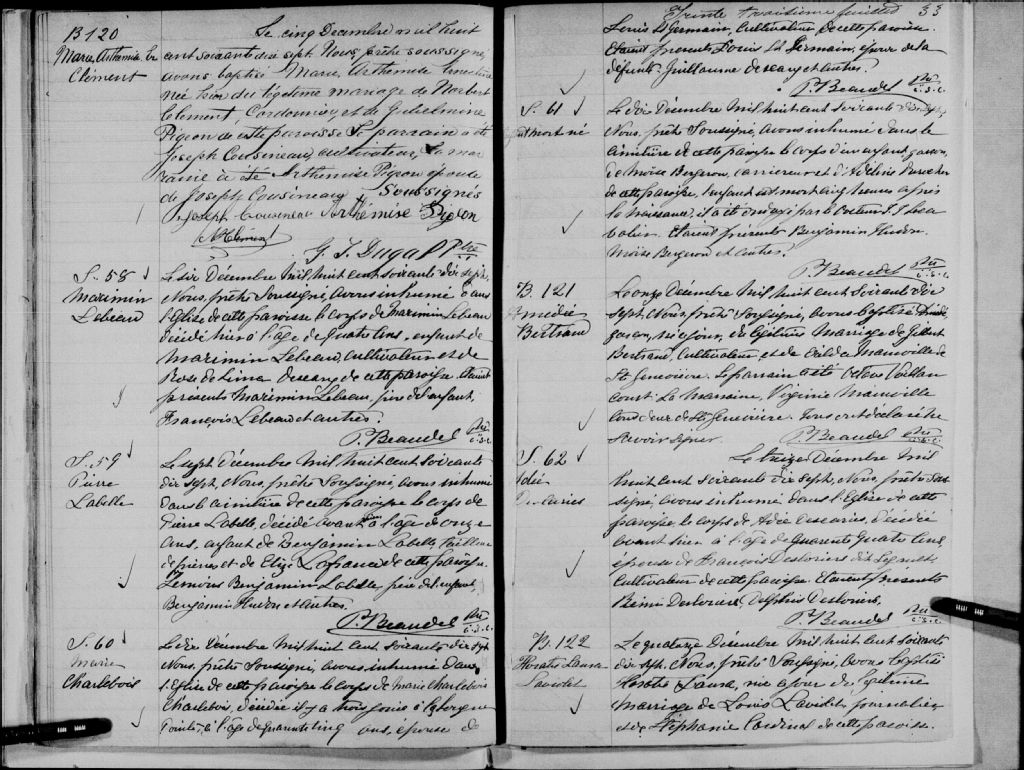 B 120
Marie Arthemise
Clément
Le cinq Decembre mil huit
cent soixante dix sept. Nous prêtre soussigné,
avons baptisé Marie Arthemise
née hier du légitime mariage de Norbert
Clement, Cordonnier, et de Guilelmine
Pigeon de cette paroisse Le parrain a été
Joseph Cousineau, cultivateur, La mar
raine a été Arthemise Pigeon epouse
de Joseph Cousineau Soussignés
Joseph Cousineau Arthémise Pigeon
N Clément
G. T. Dugal Ptre
S. 58
Maximin
Lebeau
Le six Décembre mil huit cent soixante dix sept,
Nous, prêtre Soussigné, avons inhumé dans
l'Eglise de cette paroisse le corps de Maximin Lebeau
décédé hier à l'âge de quatre ans, enfant de
Maximin Lebeau, Cultivateur et de
Rose de Lima de cette paroisse. Etaient
présents Maximin Lebeau, père de l'enfant,
François Lebeau et autres.
P. Beaudet Ptre
S. 59
Pierre
Labelle
Le sept Décembre mil huit cent soixante
dix sept, Nous, prêtre Soussigné, avons inhumé
dans le cimetière de cette paroisse le corps de
Pierre Labelle, décédé avant hier à l'âge de onze
ans, enfant de Benjamin Labelle, Tailleur
de pierres et de Eliza Lafrance de cette paroisse.
Témoins Benjamin Labelle, père de l'enfant,
Benjamin Hudon et autres.
P. Beaudet Ptre
S. 60
Marie
Charlebois
Le dix Décembre mil huit cent soixante dix sept
Nous, prêtre Soussigné, avons inhumé dans
l'Eglise de cette paroisse le corps de Marie Charlebois
Charlebois, décédée il y a trois jours à
Pointe, à l'âge de quarante cinq ans, épouse de
Trente troisième feuillet 33
Louis St Germain, Cultivateur de cette paroisse.
Etaient présents Louis St Germain, époux de la
défunte, Guillaume et autres.
P. Beaudet Ptre
S. 61
mort né
Le dix Décembre mil huit cent soixante dix sept,
Nous, prêtre Soussigné, avons inhumé dans le
cimetière de cette paroisse le corps d'un enfant garçon,
de Moïse Bergeron, carrieur et d'
de cette paroisse. L'enfant est mort cinq heures après
la naissance, il a été ondoyé par le Docteur
Etaient présents Benjamin Hudon
Moïse Bergeron et autres.
P. Beaudet Ptre
B. 121
Amédée
Bertrand
Le onze Décembre mil huit cent soixante dix
sept, Nous, prêtre Soussigné, avons baptisé
garçon, né ce jour, du légitime Mariage de
Bertrand, Cultivateur et de Exilda Mainville de
Ste Geneviève. Le parrain a été Octave Vaillan
court. La Marraine, Virginie Mainville
de Ste Geneviève. Tous ont déclaré ne
Savoir signer. P. Beaudet Ptre
S. 62
Adée
Descaries
Le treize Décembre mil
huit cent soixante dix sept, Nous, prêtre Sous
signé, avons inhumé dans l'Eglise de cette
paroisse, le corps de Adée Descaries, décédée
avant hier à l'âge de quarante quatre ans,
épouse de François Desloriers dit Legault
Cultivateur de cette paroisse. Etaient présents
Rémi Desloriers, Delphis Desloriers.
P. Beaudet Ptre
B. 122
Horatie Laura
Laviolet
Le quatorze Décembre mil huit cent soixante
dix sept. Nous, prêtre Soussigné, avons baptisé
Horatie Laura, née ce jour du légitime
mariage de Louis Laviolet, journalier
et de Stéphanie Cardinal de cette paroisse.